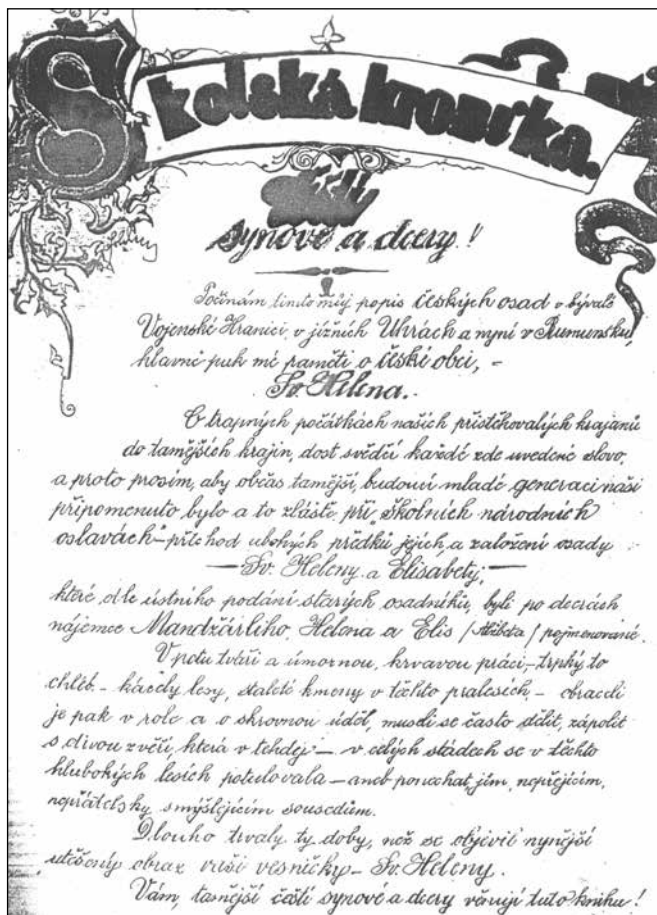 Školská kronika.
synové a dcery!
Počínám tímto můj popis českých osad v bývalé
Vojenské Hranici, v jížních Uhrách a nyní v Rumunsku,
hlavně pak mé paměti o české obci, –
Sv. Helena.
O trapných počátkách našich přistěhovalých krajanů
do tamějších krajin, dost svědčí každé zde uvedené slovo,
a proto prosím, aby občas tamější, budoucí mladé generaci naší
připomenuto bylo a to zláště při „školních národních
oslavách“ – příchod ubohých předků jejich a založení osady
— Sv. Heleny a Elisabety, —
které dle ústního podání starých osadníků, byli po dcerách
nájemce Mandžárliho, Helena a Elis / Alžběta / pojmenované.
V potu tváři a úmornou, krvavou práci, – trpký to
chléb. – kácely lesy, staleté kmeny v těchto pralesích, – obraceli
je pak v role a o skrovnou úděl, museli se často dělit, zápolit
s divou zvěří, která v tehdej – v celých stádech se v těchto
hlubokých lesích potulovala – aneb ponechat jím, nepřejícím,
nepřátelsky smýšlejícim sousedům.
Dlouho trvaly ty doby, než se objevil nynější
utěšený obraz vaší vesničky – Sv. Heleny.
Vám, tamější čeští synové a dcery věnuji tuto knihu!